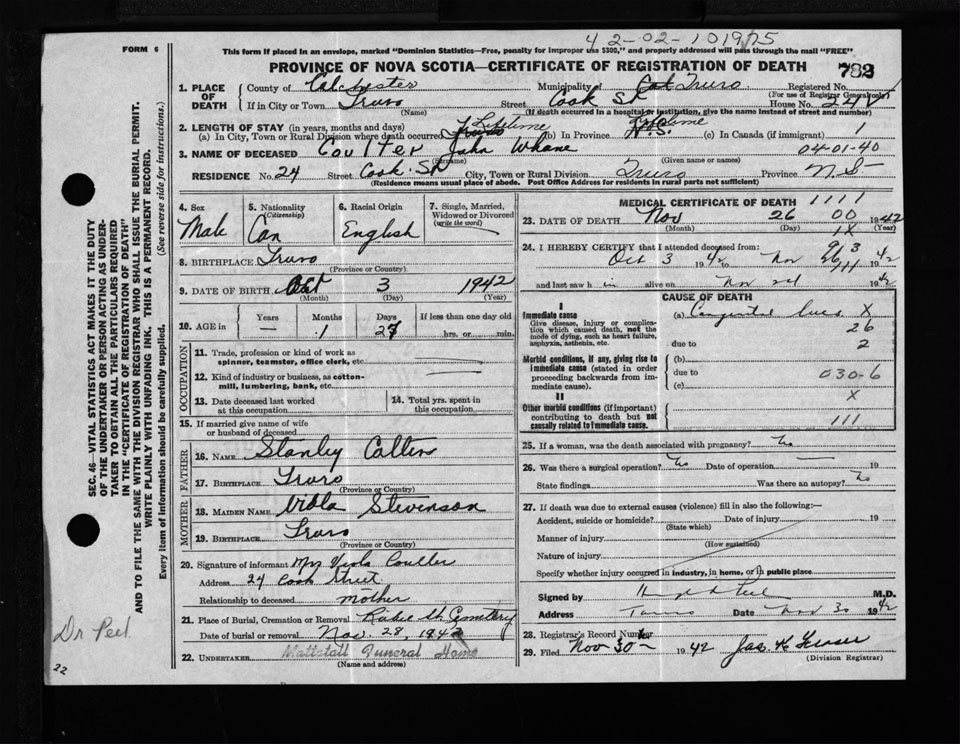 42-02-101975
FORM 6
This form if placed in an envelope, marked "Dominion Statistics—Free, penalty for improper use $300," and properly addressed will pass through the mail "FREE"
PROVINCE OF NOVA SCOTIA—CERTIFICATE OF REGISTRATION OF DEATH 782
1. PLACE OF DEATH County of Colchester Municipality of Truro Registered No.
(For use of Registrar General only)
If in City or Town Truro Street Cook St House No. 24
(Name) (If death occurred in a hospital or institution, give the name instead of street and number)
2. LENGTH OF STAY (in years, months and days)
(a) In City, Town or Rural Division where death occurred Lifetime (b) In Province Lifetime (c) In Canada (if immigrant) 1
3. NAME OF DECEASED Coulter John 04-01-40
(Surname) (Given name or names)
RESIDENCE No. 24 Street Cook St City, Town or Rural Division Truro Province N.S.
(Residence means usual place of abode. Post Office Address for residents in rural parts not sufficient)
4. Sex Male
5. Nationality (Citizenship) Can
6. Racial Origin English
7. Single, Married, Widowed or Divorced (write the word)
8. BIRTHPLACE Truro
(Province or Country)
9. DATE OF BIRTH Oct 3 1942
(Month) (Day) (Year)
10. AGE in Years — Months 1 Days 27 If less than one day old hrs. or min.
OCCUPATION
11. Trade, profession or kind of work as spinner, teamster, office clerk, etc.
12. Kind of industry or business, as cotton-mill, lumbering, bank, etc.
13. Date deceased last worked at this occupation
14. Total yrs. spent in this occupation
15. If married give name of wife or husband of deceased
FATHER
16. NAME Stanley
17. BIRTHPLACE Truro
(Province or Country)
MOTHER
18. MAIDEN NAME Viola Stevenson
19. BIRTHPLACE Truro
(Province or Country)
20. Signature of informant Mrs Viola Coulter
Address 24 Cook Street
Relationship to deceased mother
21. Place of Burial, Cremation or Removal Cemetery
Date of burial or removal Nov. 28, 1942
22. UNDERTAKER Mattatall Funeral Home
(Name and address)
MEDICAL CERTIFICATE OF DEATH 1111
23. DATE OF DEATH Nov 26 00 1942
(Month) (Day) (Year)
1X
24. I HEREBY CERTIFY that I attended deceased from:
Oct 3 1942 to Nov 26 1942
and last saw h im alive on Nov 1942
CAUSE OF DEATH
I
Immediate cause
Give disease, injury or complication which caused death, not the mode of dying, such as heart failure, asphyxia, asthenia, etc.
(a) Congenital lues X
26
due to 2
Morbid conditions, if any, giving rise to immediate cause (stated in order proceeding backwards from immediate cause).
(b)
due to 030-6
(c)
II X
Other morbid conditions (if important) contributing to death but not causally related to immediate cause.
111
25. If a woman, was the death associated with pregnancy? No
26. Was there a surgical operation? No Date of operation — 19
State findings Was there an autopsy? No
27. If death was due to external causes (violence) fill in also the following:—
Accident, suicide or homicide? Date of injury 19
(State which)
Manner of injury
(How sustained)
Nature of injury
Specify whether injury occurred in industry, in home, or in public place
Signed by M.D.
Address Truro Date Nov 30 1942
28. Registrar's Record Number
29. Filed Nov 30 1942 Jas. K
(Division Registrar)
SEC. 46—VITAL STATISTICS ACT MAKES IT THE DUTY
OF THE UNDERTAKER OR PERSON ACTING AS UNDER-
TAKER TO OBTAIN ALL THE PARTICULARS REQUIRED
IN THE "CERTIFICATE OF REGISTRATION OF DEATH"
AND TO FILE THE SAME WITH THE DIVISION REGISTRAR WHO SHALL ISSUE THE BURIAL PERMIT.
WRITE PLAINLY WITH UNFADING INK. THIS IS A PERMANENT RECORD.
Every item of information should be carefully supplied. (See reverse side for instructions.)
Dr Peel
22